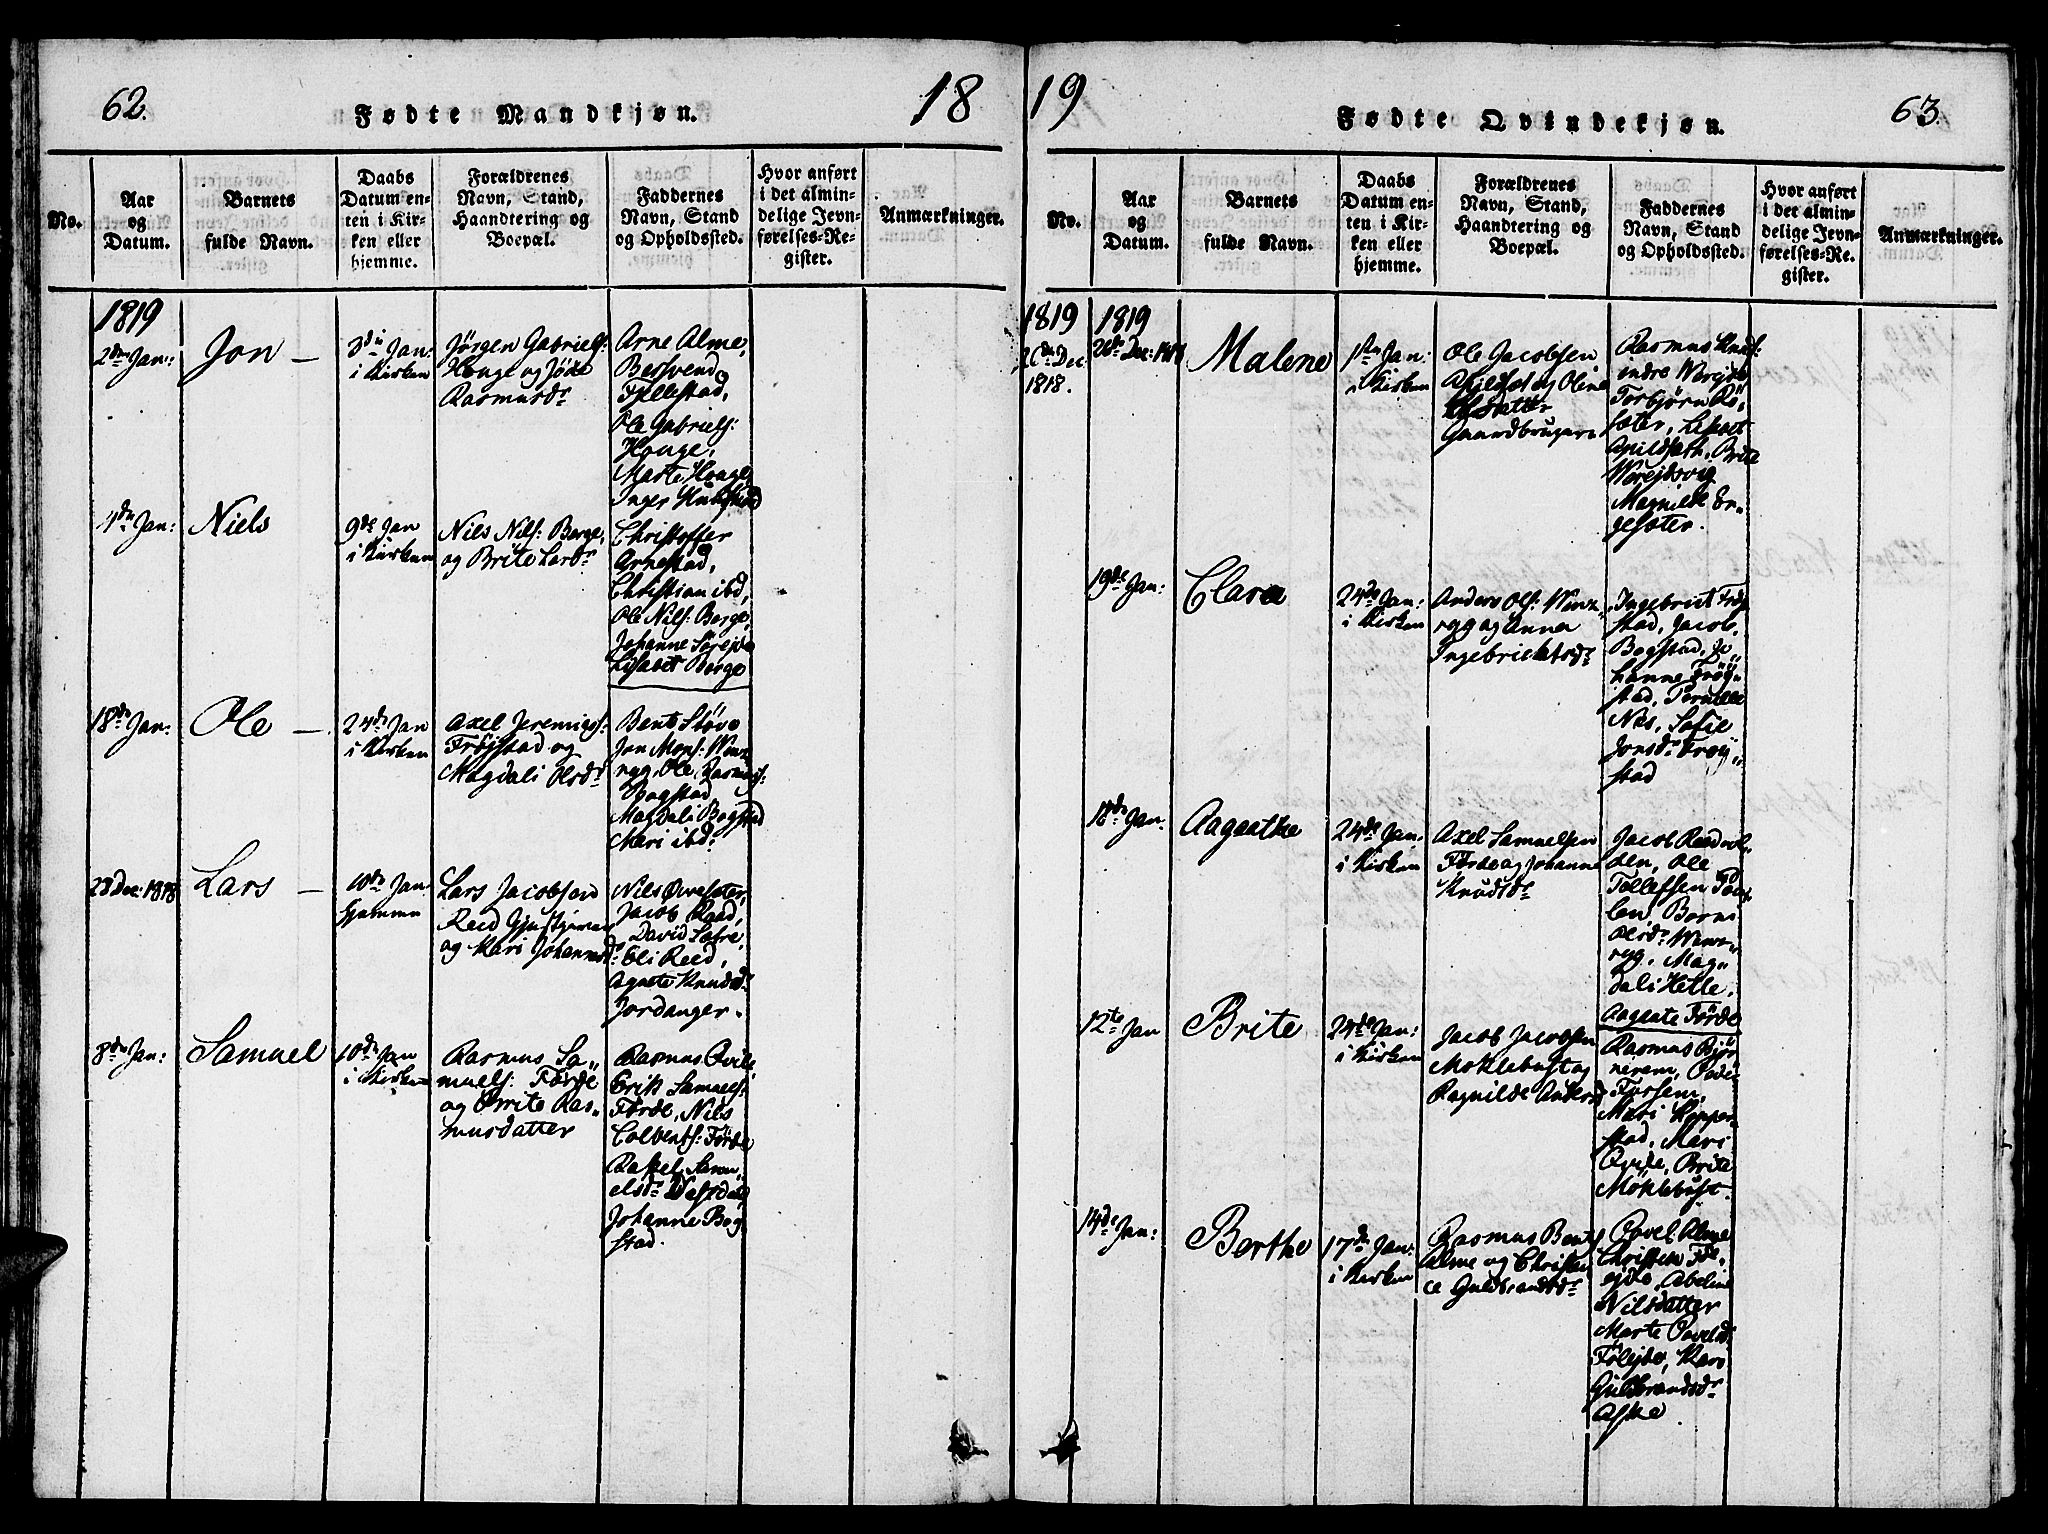 62.
18
Fødte Mandkjøn.
No.
Aar
og
Datum.
Barnets
fulde Navn.
Daabs
Datum en-
ten i Kir-
ken eller
hjemme.
Forældrenes
Navn, Stand,
Haandtering og
Boepæl.
Faddernes
Navn, Stand
og Opholdssted.
Hvor anført
i det almin-
delige Jevn-
førelses-Re-
gister.
Anmærkninger.
1819
2den Jan:
Jon —
3die Jan:
i Kirken
Jörgen Gabriels:
Houge og
Rasmusdr
Arne Alme,
Ole Gabriels:
Houge,
Marte Houge,
Inger
4de Jan:
Niels
9de Jan
i Kirken
Nils Nils: Berge,
og Brite Larsdr
Christoffer
Arnestad,
Christian ibd,
Ole Nils: Berge,
Johanne
Lisabet Berge
18de Jan:
Ole —
24de Jan
i Kirken
Axel Jeremias:
Fröjstad og
Magdali Olsdr
Bent Støve
Jon Mons:
Ole Rasmus:
Bogstad
Magdali Bogstad
Mari ibd:
23 Dec: 1818
Lars —
10de Jan
hjemme
Lars Jacobsen
Reed
og Mari Johannesdr
Nils Övresæter,
Jacob Reed,
David
Eli Reed,
Agnete Knudsdr
Jordanger.
8de Jan:
Samuel
10de Jan
i Kirken
Rasmus Sa„
muels: Förde
og Brite Ras„
musdatter
Rasmus Qvile
Erik Samuels:
Förde, Nils
Förde
Rassel Samu„
elsdr
Johanne Bog
stad.
19
63.
Fødte Qvindekjøn.
No.
Aar
og
Datum.
Barnets
fulde Navn.
Daabs
Datum en-
ten i Kir-
ken eller
hjemme.
Forældrenes
Navn, Stand,
Haandtering og
Boepæl.
Faddernes
Navn, Stand
og Opholdssted.
Hvor anført
i det almin-
delige Jevn-
førelses-Re-
gister.
Anmærkninger.
1819
26de Dec
1818.
1819
26de Dec: 1818
Malene
1ste Jan:
i Kirken
Ole Jacobsen
og Oline
Gaardbruger
Rasmus
Torbjörn Rö„
sæter, Lisabet
Brite
19de Jan:
Clara
24de Jan:
i Kirken
Anders Ols:
og Anna
Ingebrichtsdr
Ingebrict Fröj
stad, Jacob
Bogstad, Jo„
hanne Fröy„
stad, Pernille
Nes, Sofie
Jonsdr Fröy„
stad
18de Jan.
Aagathe
24de Jan:
i Kirken
Axel Samuelsen
Förde og Johanne
Knudsdr
Jacob
Ole
Tollefsen
Olsdr
Mag„
dali Hetle,
Aagate Förde
12te Jan
Brite
24de Jan:
i Kirken
Jacob Jacobsen
Moklebust og
Ragnilde
Rasmus
Mari
stad, Mari
Qvile, Brite
Möklebust.
14de Jan:
Berthe
17de Jan:
i Kirken
Rasmus Bents
Alme og Christen
ce Guldbrandsdr
Povel Alme
Abeline
Nilsdatter
Marte Povelsdr
Kari
Guldbrandsdr
Aske